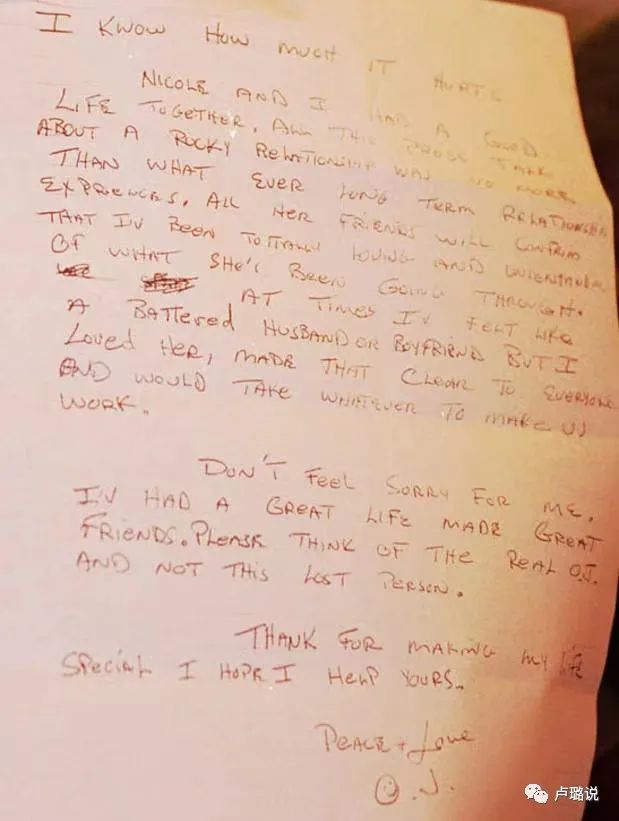 I KNOW HOW MUCH IT HURTS
NICOLE AND I HAD A GOOD
LIFE TOGETHER. ALL THIS PRESS TALK
ABOUT A ROCKY RELATIONSHIP WAS NO MORE
THAN WHAT EVER LONG TERM RELATIONSHIP
EXPRIENCES. ALL HER FRIENDS WILL CONFIRM
THAT I'V BEEN TOTTALLY LOVING AND
OF WHAT SHE'S BEEN GOING THROUGH.
AT TIMES I'V FELT LIKE
A BATTERED HUSBAND OR BOYFRIEND BUT I
LOVED HER, MADE THAT CLEAR TO EVERYONE
AND WOULD TAKE WHATEVER TO MAKE US
WORK.
DON'T FEEL SORRY FOR ME.
I'V HAD A GREAT LIFE MADE GREAT
FRIENDS. PLEASE THINK OF THE REAL O.J.
AND NOT THIS LOST PERSON.
THANK FOR MAKING MY LIFE
SPECIAL I HOPE I HELP YOURS.
PEACE + LOVE
O.J.
卢璐说